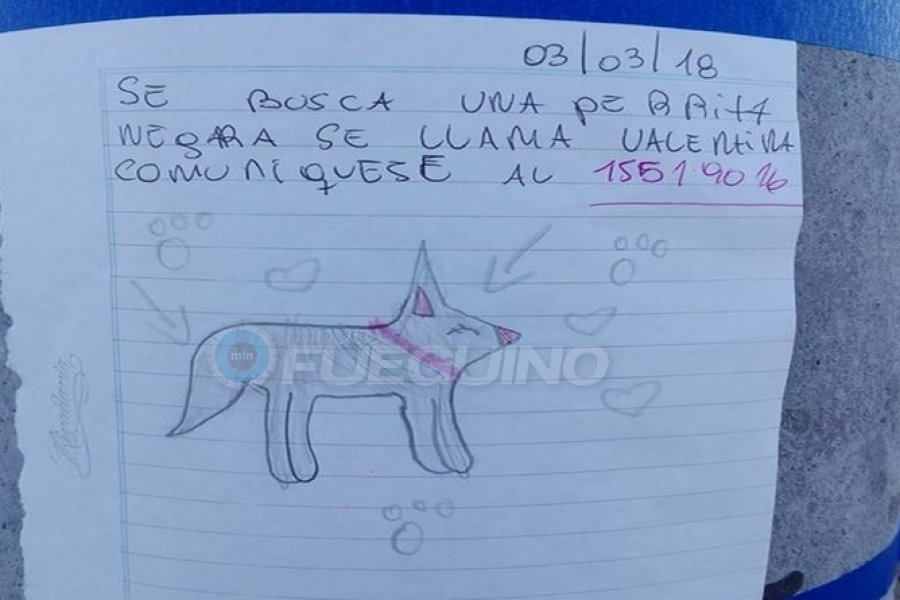 03/03/18
SE BUSCA UNA PERRITA
NEGARA SE LLAMA VALENTINA
COMUNIQUESE AL 15519016
min FUEGUINO
Rivadavia